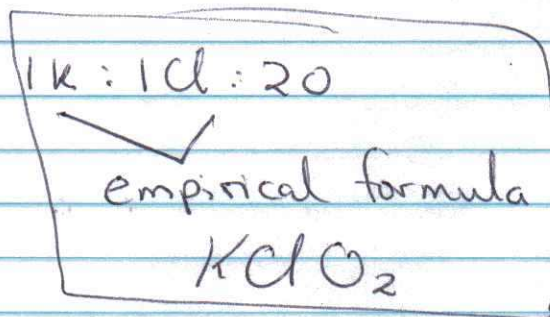 1K : 1Cl : 2O
empirical formula
KClO₂